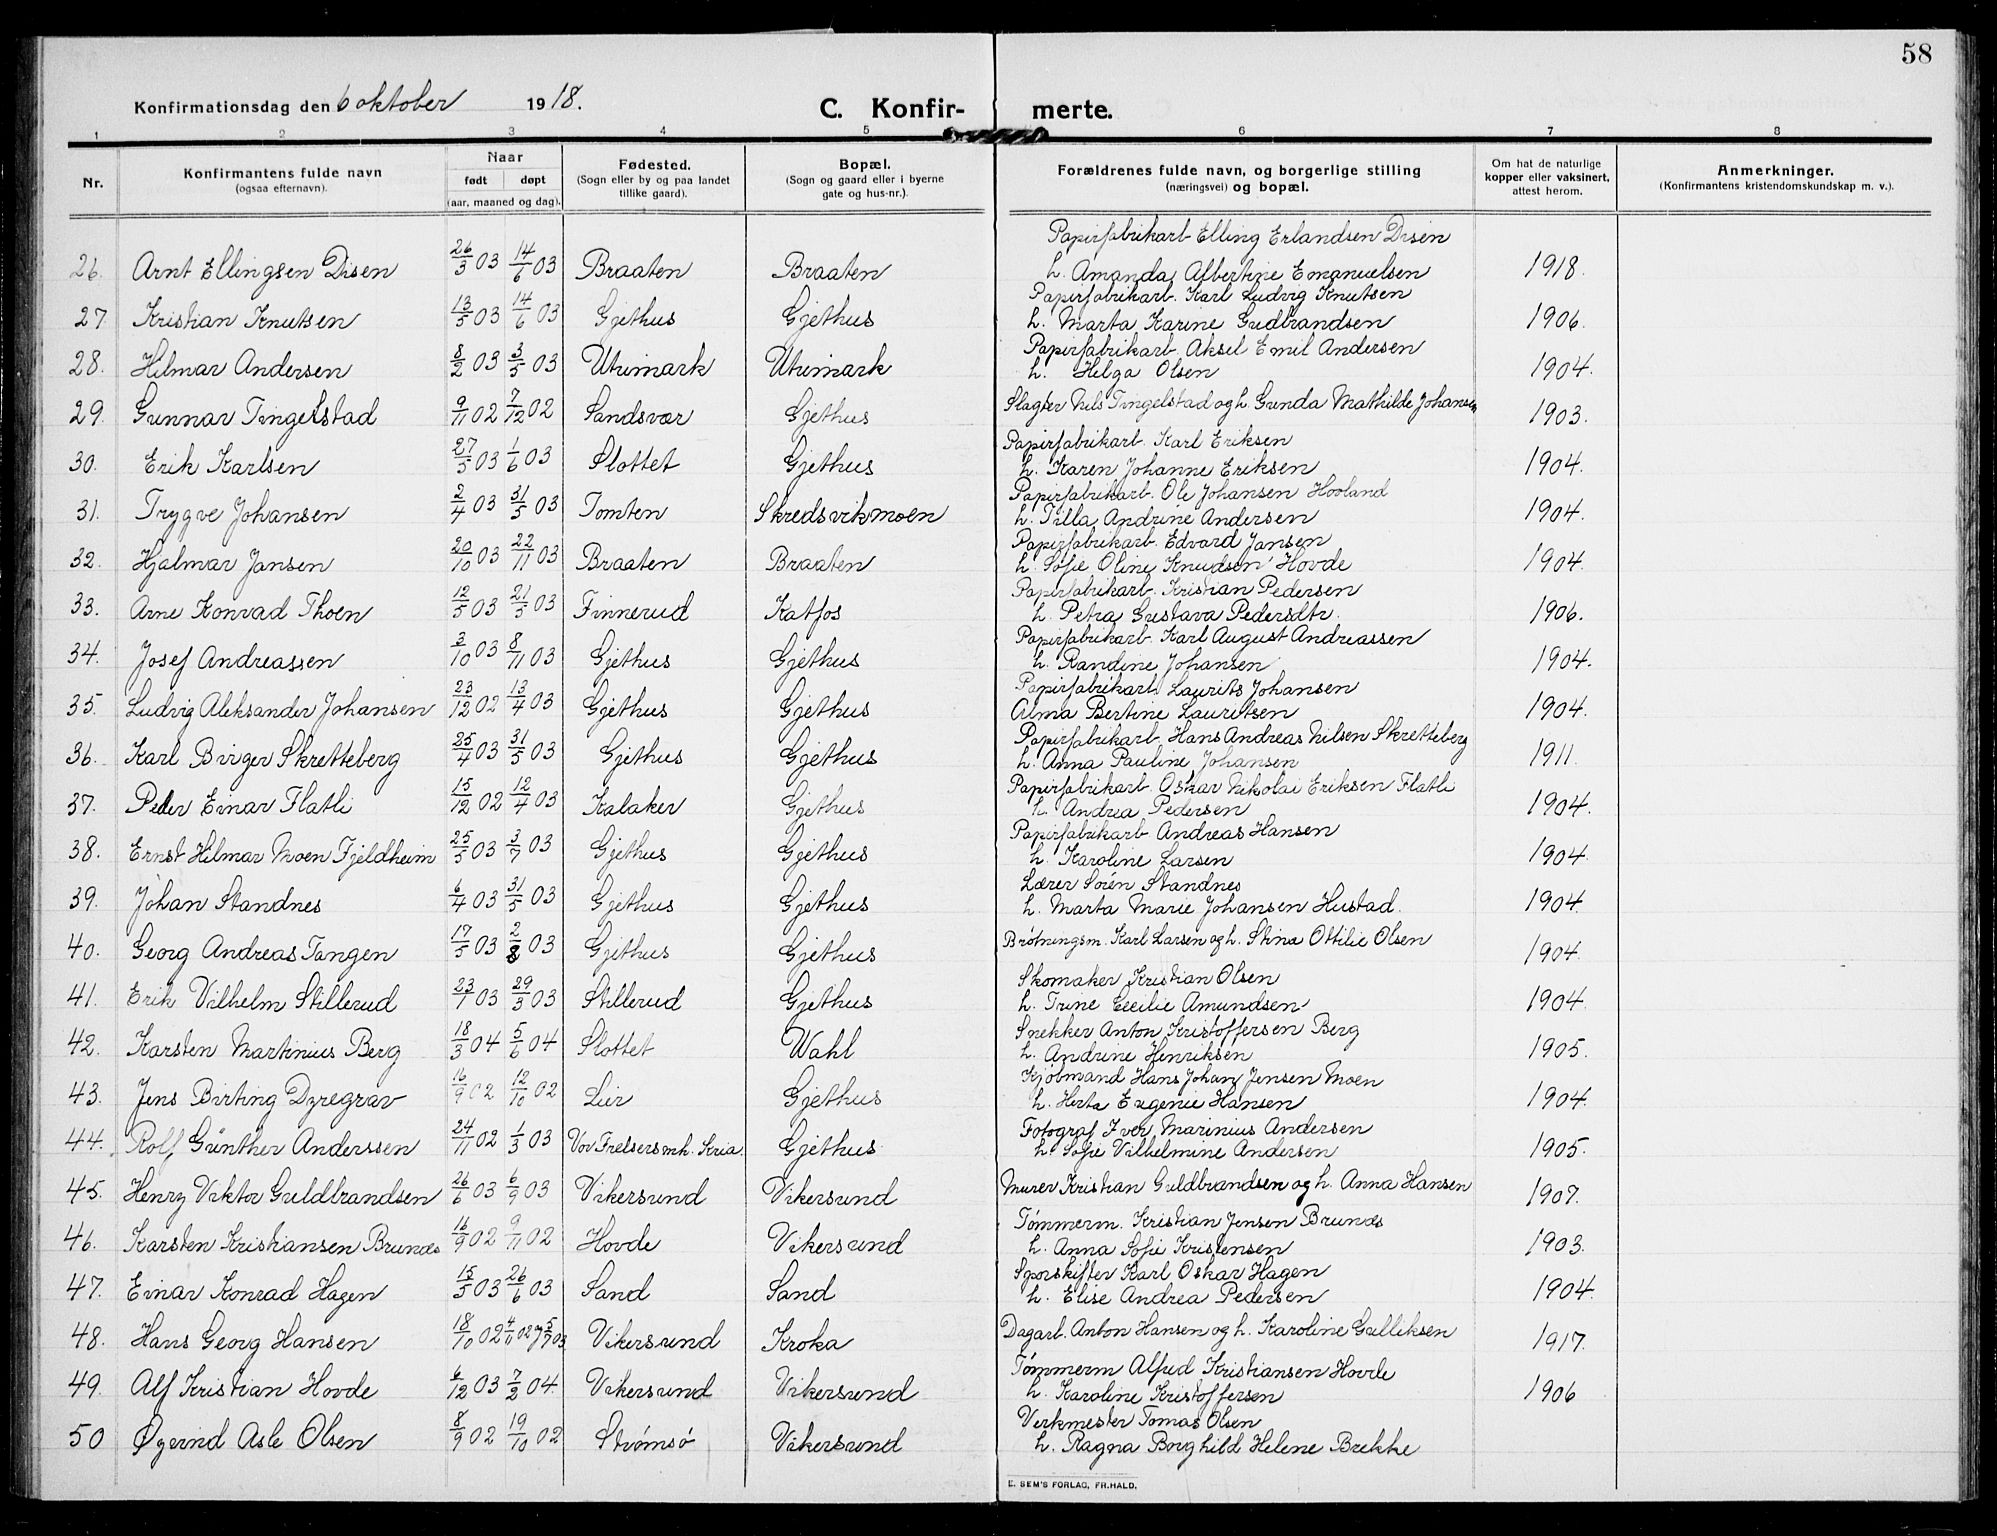 58
Konfirmationsdag den 6 oktober 1918. C. Konfir- merte.
1 2 3 4 5 6 7 8
Nr. Konfirmantens fulde navn (ogsaa efternavn). Naar født døpt (aar, maaned og dag). Fødested. (Sogn eller by og paa landet tillike gaard). Bopæl. (Sogn og gaard eller i byerne gate og hus-nr.). Forældrenes fulde navn, og borgerlige stilling (næringsvei) og bopæl. Om hat de naturlige kopper eller vaksinert, attest herom. Anmerkninger. (Konfirmantens kristendomskundskap m. v.).
Papirfabrikarb. Elling Erlandsen Disen
26. Arnt Ellingsen Disen 26/3 03 14/6 03 Braaten Braaten h. Amanda Albertine Emanuelsen 1918.
Papirfabrikarb. Karl Ludvig Knutsen
27. Kristian Knutsen 13/5 03 14/6 03 Gjethus Gjethus h. Marta Karine Gudbrandsen 1906.
Papirfabrikarb. Aksel Emil Andersen
28. Hilmar Andersen 8/2 03 3/5 03 Utrimark Utrimark h. Helga Olsen 1904.
29. Gunnar Tingelstad 9/11 02 7/12 02 Sandsvær Gjethus Slagter Nils Tingelstad og h. Gunda Mathilde Johansen 1903.
Papirfabrikarb. Karl Eriksen
30. Erik Karlsen 27/5 03 1/6 03 Slottet Gjethus h. Karen Johanne Eriksen 1904.
Papirfabrikarb. Ole Johansen Hooland
31. Trygve Johansen 2/4 03 31/5 03 Tomten Skredsvikmoen h. Tilla Andrine Andersen 1904.
Papirfabrikarb. Edvard Jansen
32. Hjalmar Jansen 20/10 03 22/11 03 Braaten Braaten h. Sofie Oline Knudsen Hovde 1904.
Papirfabrikarb. Kristian Pedersen
33. Arne Konrad Thoen 12/5 03 21/5 03 Finnerud Katfos h. Petra Gustava Pedersdtr. 1906.
Papirfabrikarb. Karl August Andreassen
34. Josef Andreassen 3/10 03 8/11 03 Gjethus Gjethus h. Randine Johansen 1904.
Papirfabrikarb. Laurits Johansen
35. Ludvig Aleksander Johansen 23/12 02 13/4 03 Gjethus Gjethus Alma Bertine Lauritsen 1904.
Papirfabrikarb. Hans Andreas Nilsen Skretteberg
36. Karl Birger Skretteberg 25/4 03 31/5 03 Gjethus Gjethus h. Anna Pauline Johansen 1911.
Papirfabrikarb. Oskar Nikolai Eriksen Flatli
37. Peder Einar Flatli 15/12 02 12/4 03 Kalaker Gjethus h. Andrea Pedersen 1904.
Papirfabrikarb. Andreas Hansen
38. Ernst Hilmar Moen Fjeldheim 25/5 03 3/7 03 Gjethus Gjethus h. Karoline Larsen 1904.
Lærer Sørén Standnes
39. Johan Standnes 6/4 03 31/5 03 Gjethus Gjethus h. Marta Marie Johansen Hustad. 1904.
40. Georg Andreas Tangen 17/5 03 2/8 03 Gjethus Gjethus Brøtningsm. Karl Larsen og h. Stina Ottilie Olsen 1904.
Skomaker Kristian Olsen
41. Erik Vilhelm Stillerud 23/1 03 29/3 03 Stillerud Gjethus h. Trine Cecilie Amundsen 1904.
Snekker Anton Kristoffersen Berg
42. Karsten Martinius Berg 18/3 04 5/6 04 Slottet Wahl h. Andrine Henriksen 1905.
Kjøbmand Hans Johan Jensen Moen
43. Jens Birting Dyregrav 16/9 02 12/10 02 Lier Gjethus h. Herta Eugenie Hansen 1904.
Fotograf Iver Marinius Andersen
44. Rolf Günther Anderssen 24/11 02 1/3 03 Vor Frelsers mh. Kria. Gjethus h. Sofie Vilhelmine Andersen 1905.
45. Henry Viktor Guldbrandsen 26/6 03 6/9 03 Vikersund Vikersund Murer Kristian Guldbrandsen og h. Anna Hansen 1907.
Tømmerm. Kristian Jensen Brunæs
46. Karsten Kristiansen Brunæs 16/9 02 9/11 02 Hovde Vikersund h. Anna Sofie Kristensen 1903.
Sporskifter Karl Oskar Hagen
47. Einar Konrad Hagen 15/5 03 26/6 03 Sand Sand h. Elise Andrea Pedersen 1904.
48. Hans Georg Hansen 18/10 02 Vikersund Kroka Dagarb. Anton Hansen og h. Karoline Gulliksen 1917.
Tømmerm Alfred Kristiansen Hovde
49. Alf Kristian Hovde 6/12 03 7/2 04. Vikersund Vikersund h. Karoline Kristoffersen 1906
Verkmester Tomas Olsen
50 Øyvind Asle Olsen 8/9 02 19/10 02 Strømsø Vikersund h. Ragna Borghild Helene Brekke
E. SEM'S FORLAG, FR.HALD.